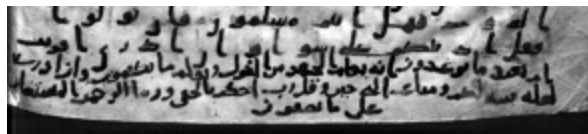 اله وحد فهل انتم مسلمون فان تولوا
فقل اذنتكم على سوا وان ادرى اقريب
ام بعيد ما توعدون انه يعلم الجهر من القول ويعلم ما تكتمون وان ادرى
لعله فتنه لكم ومتاع الى حين قل رب احكم بالحق وربنا الرحمن المستعان
على ما تصفون